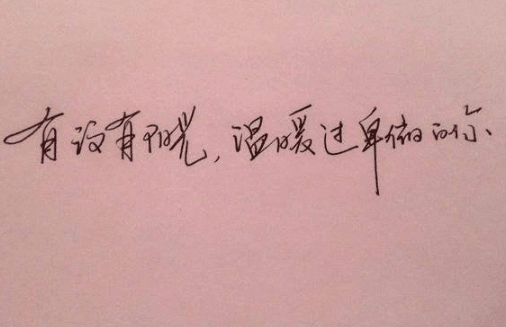 有没有阳光，温暖过卑微的你、